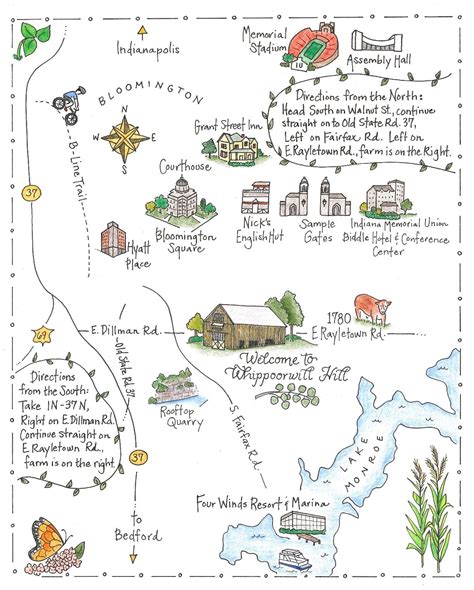 to
Indianapolis
Memorial
Stadium
IU
Assembly Hall
BLOOMINGTON
N
W
E
S
B-Line Trail
37
Directions from the North:
Head South on Walnut St., continue
straight on to Old State Rd. 37,
Left on Fairfax Rd. Left on
E. Rayletown Rd., farm is on the Right.
Grant Street Inn
Courthouse
Bloomington
Square
Hyatt
Place
Nick's
English Hut
Sample
Gates
Indiana Memorial Union
Biddle Hotel & Conference
Center
69
E. Dillman Rd.
Old State Rd 37
1780
E. Rayletown Rd.
Welcome to
Whippoorwill Hill
Directions
from the South:
Take IN-37 N,
Right on E. Dillman Rd.
Continue straight on
E. Rayletown Rd.,
farm is on the right.
Rooftop
Quarry
S. Fairfax Rd.
37
LAKE
MONROE
Four Winds Resort & Marina
to
Bedford